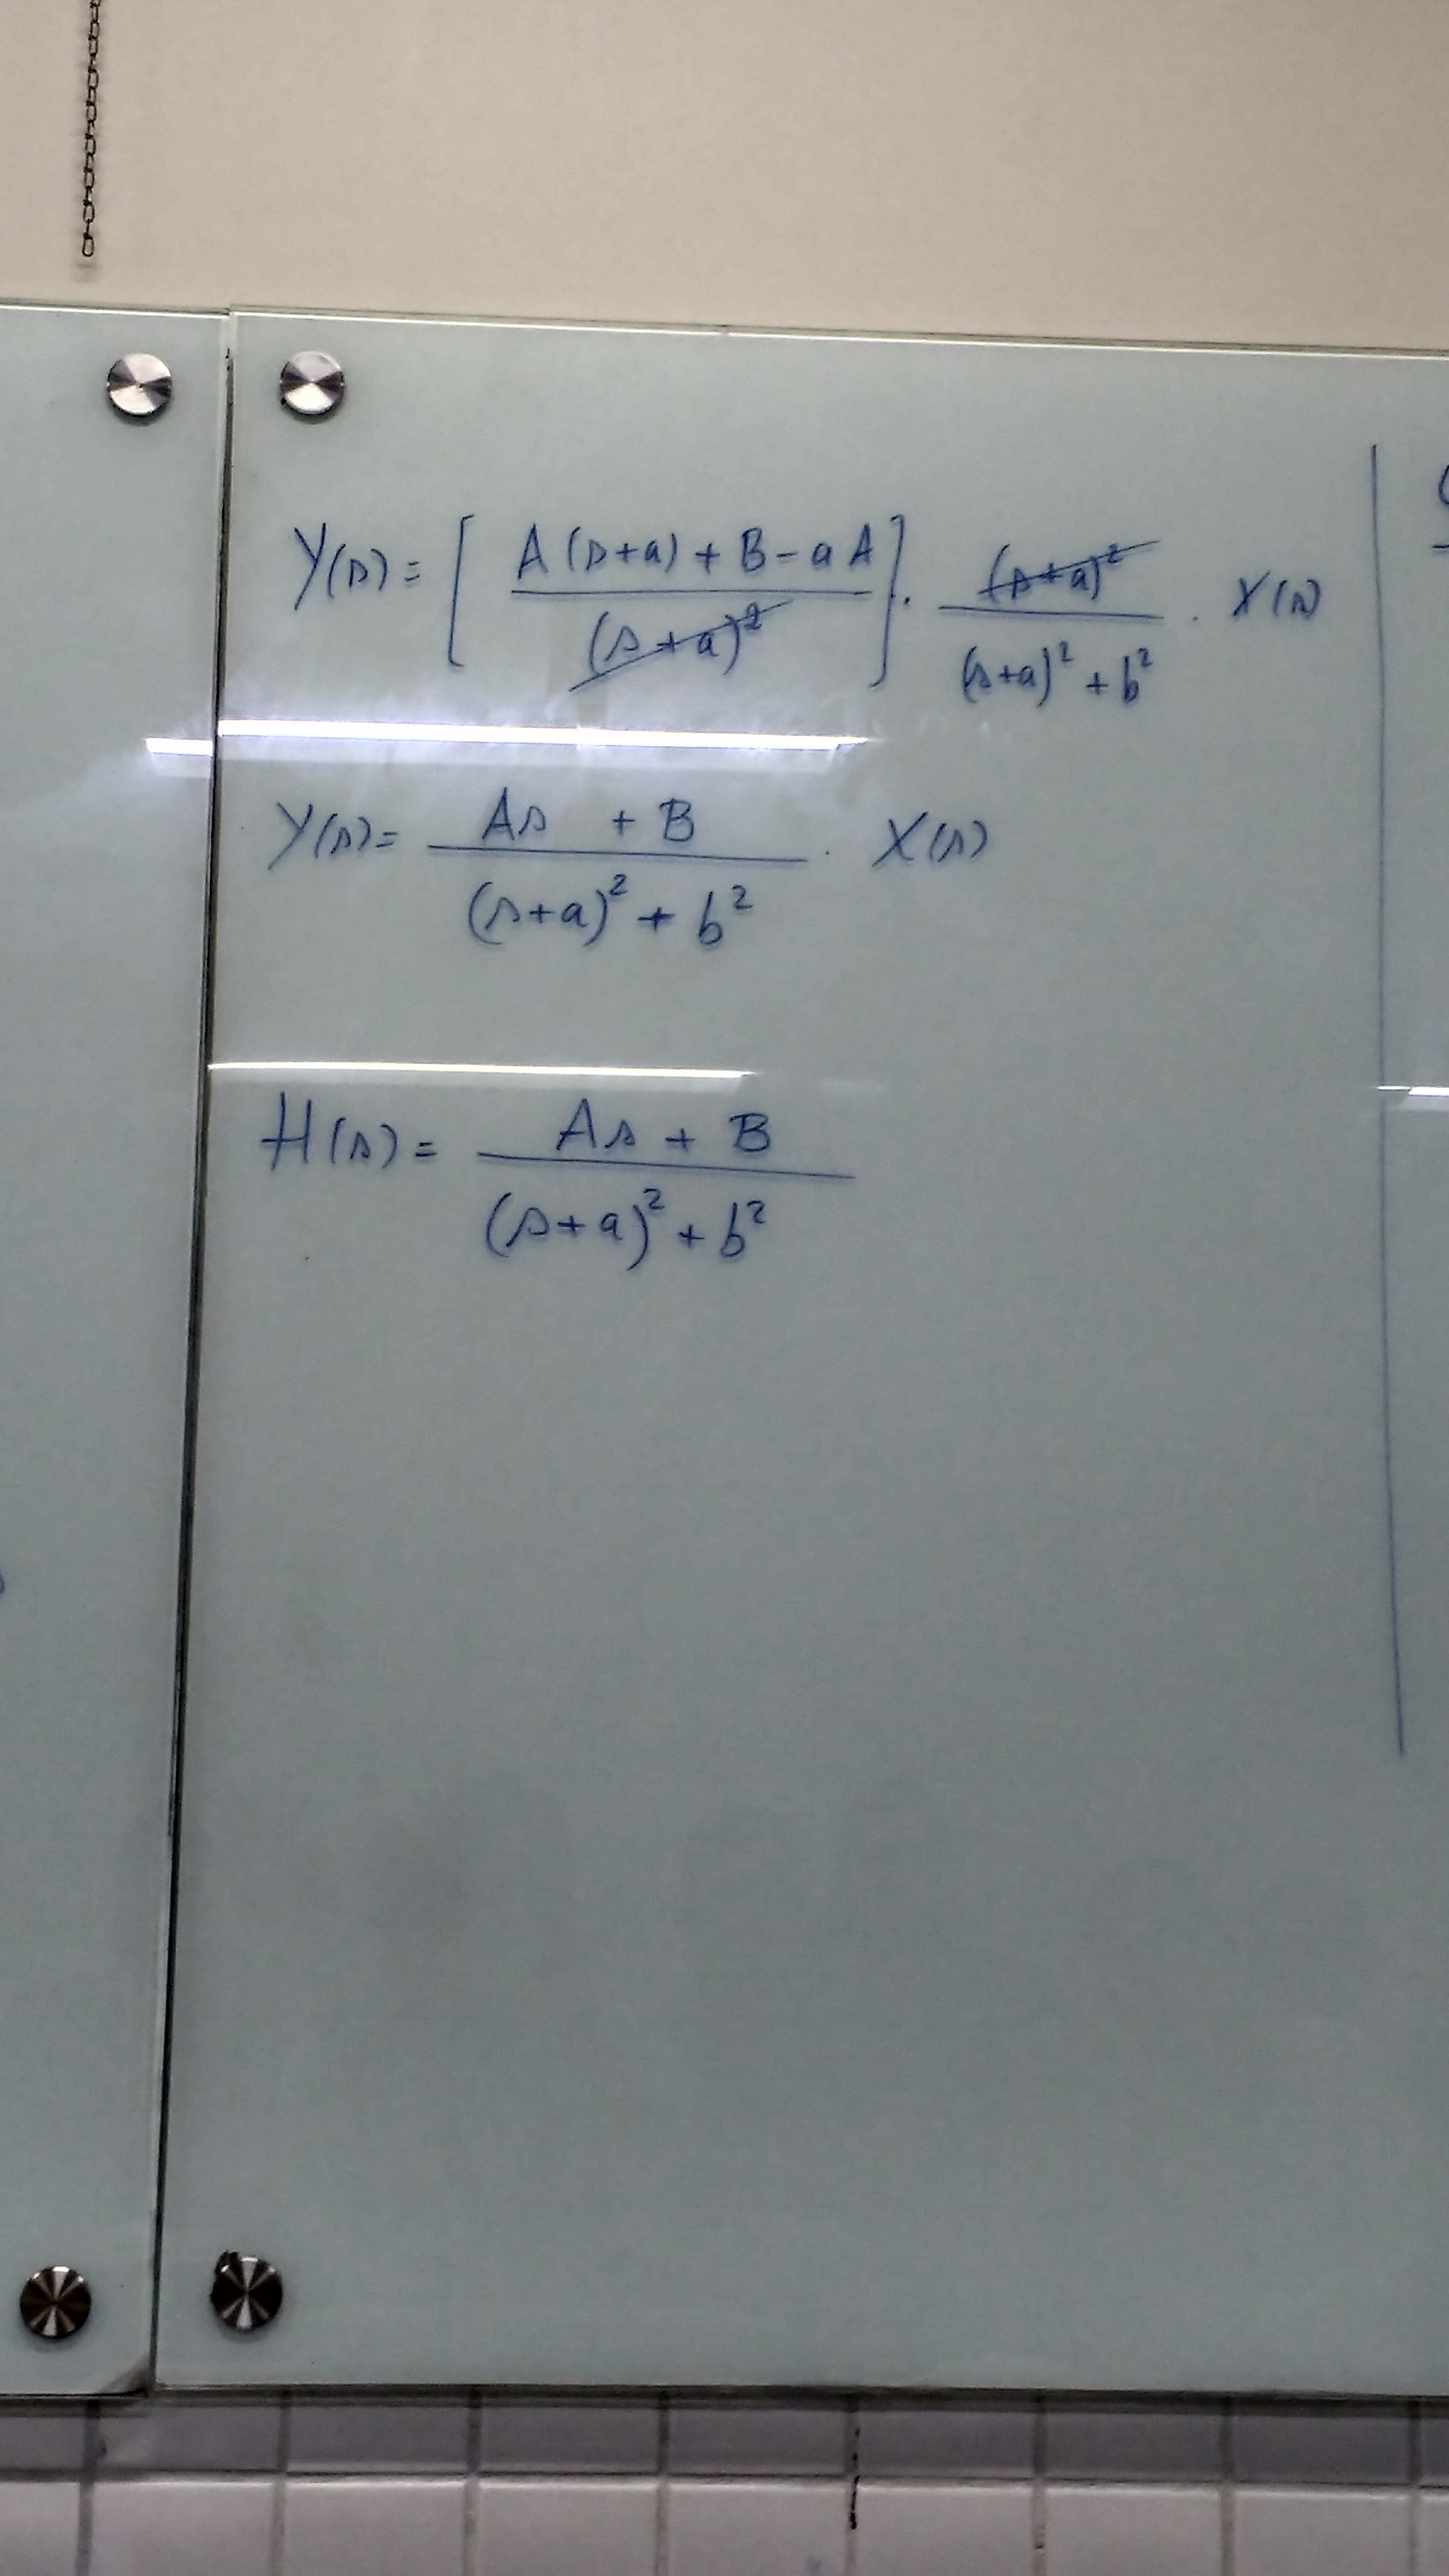 Y(s) = [ (A(s+a) + B - aA) / (s+a)² ] · (s+a)² / ((s+a)² + b²) · X(s)
Y(s) = (As + B) / ((s+a)² + b²) · X(s)
H(s) = (As + B) / ((s+a)² + b²)